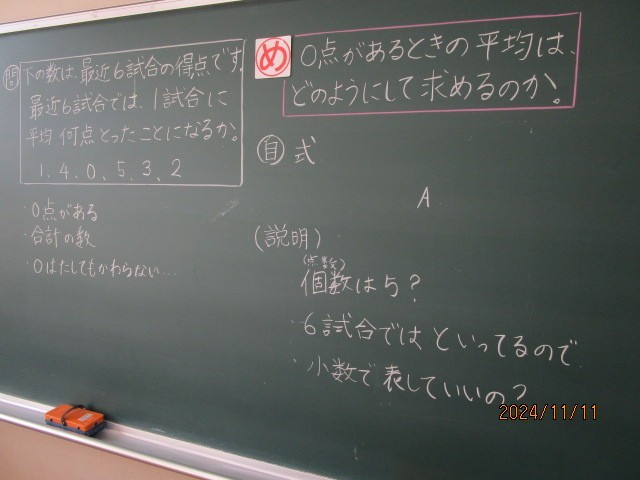 問
下の数は、最近6試合の得点です。
最近6試合では、1試合に
平均 何点とったことになるか。
1、4、0、5、3、2
・0点がある
・合計の数
・0はたしてもかわらない…
め
0点があるときの平均は、
どのようにして求めるのか。
自 式
A
(説明)
(点数)
個数は5?
・6試合では といってるので
・小数で表していいの?
2024/11/11